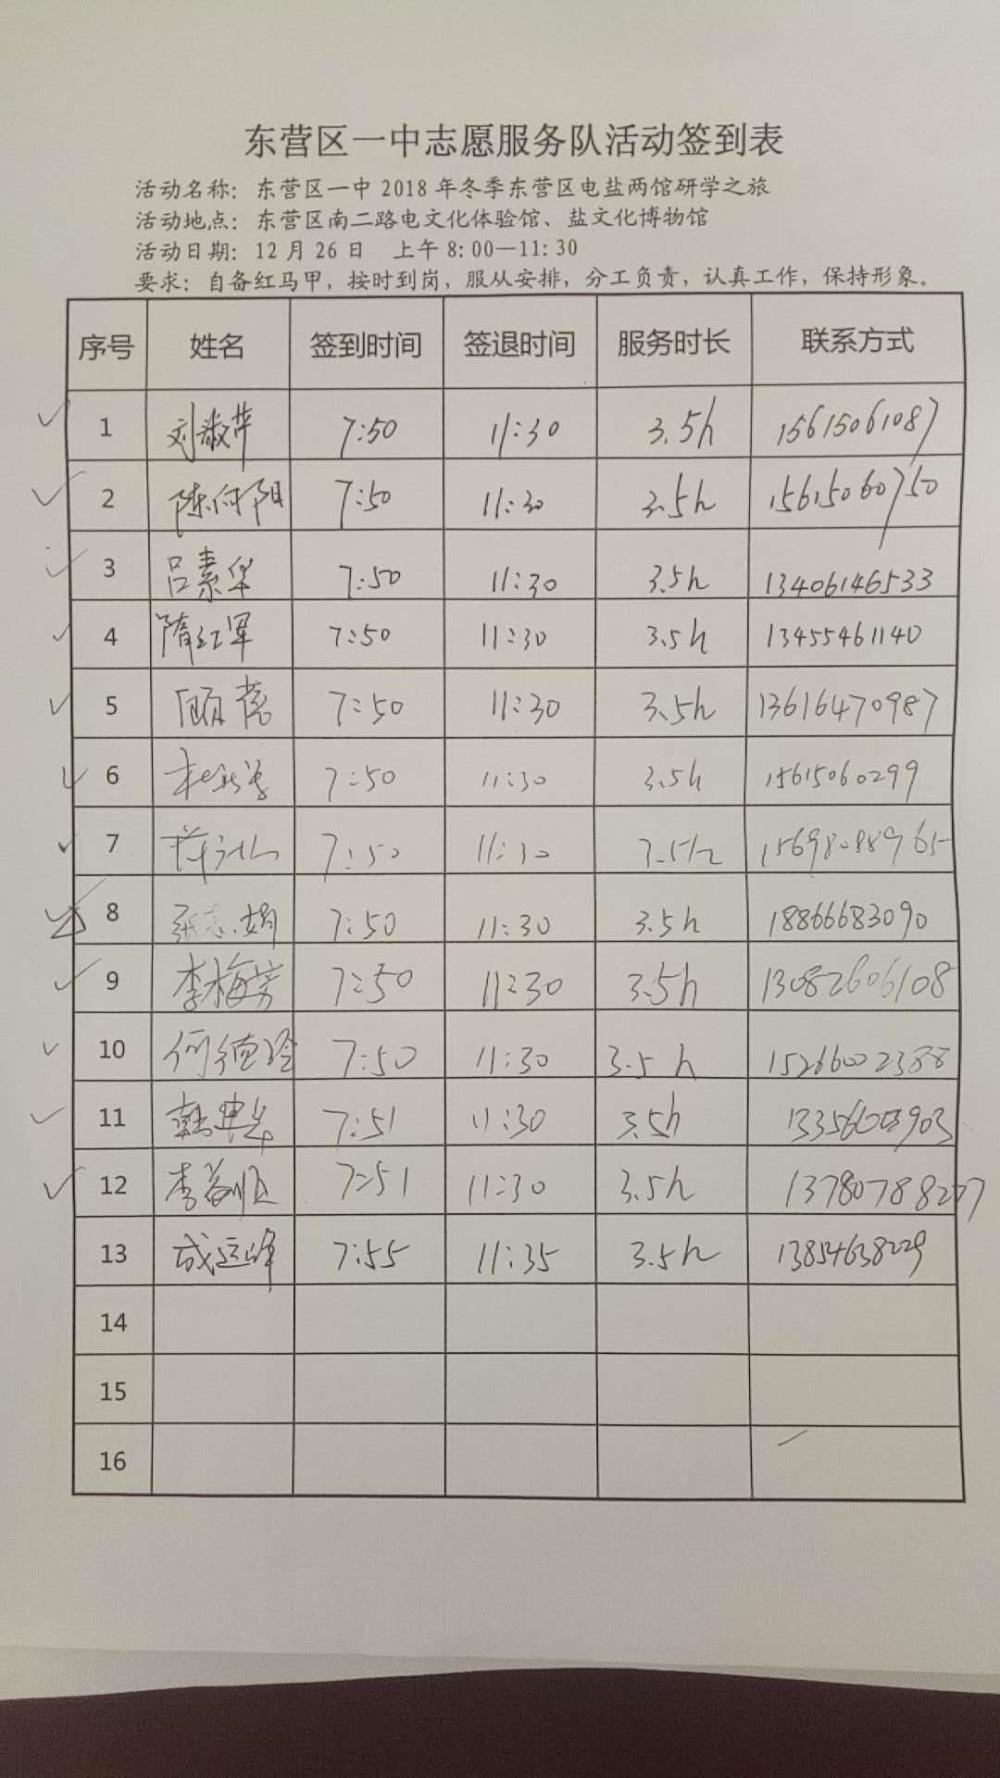 东营区一中志愿服务队活动签到表
活动名称：东营区一中 2018 年冬季东营区电盐两馆研学之旅
活动地点：东营区南二路电文化体验馆、盐文化博物馆
活动日期：12 月 26 日 上午 8：00—11：30
要求：自备红马甲，按时到岗，服从安排，分工负责，认真工作，保持形象。
序号 姓名 签到时间 签退时间 服务时长 联系方式
1 刘淑萍 7:50 11:30 3.5h 15615061087
2 陈向阳 7:50 11:30 3.5h 15615060750
3 吕素华 7:50 11:30 3.5h 13406146533
4 隋红军 7:50 11:30 3.5h 13455461140
5 顾蓓 7:50 11:30 3.5h 13616470987
6 7:50 11:30 3.5h 15615060299
7 7:50 11:30 3.5h
8 张志娟 7:50 11:30 3.5h 18866683090
9 李梅芳 7:50 11:30 3.5h 13082606108
10 何德玲 7:50 11:30 3.5h 15266002388
11 韩典华 7:51 11:30 3.5h
12 李益顺 7:51 11:30 3.5h
13 成运峰 7:55 11:35 3.5h 13854638229
14
15
16